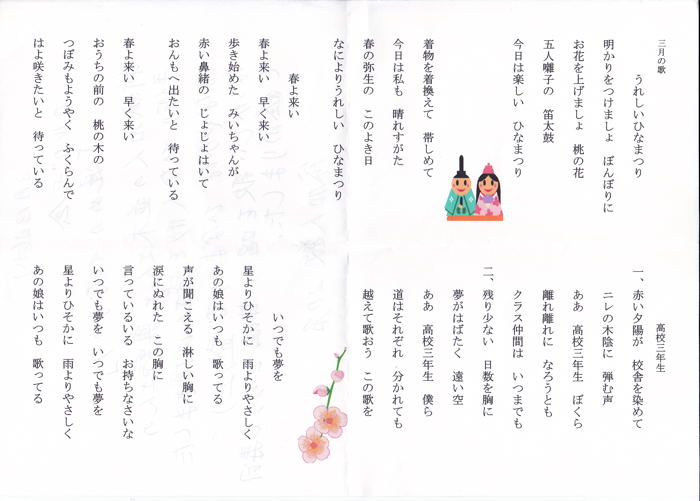 三月の歌
うれしいひなまつり
明かりをつけましょ　ぼんぼりに
お花を上げましょ　桃の花
五人囃子の　笛太鼓
今日は楽しい　ひなまつり
着物を着換えて　帯しめて
今日は私も　晴れすがた
春の弥生の　このよき日
なによりうれしい　ひなまつり
春よ来い
春よ来い　早く来い
歩き始めた　みいちゃんが
赤い鼻緒の　じょじょはいて
おんもへ出たいと　待っている
春よ来い　早く来い
おうちの前の　桃の木の
つぼみもようやく　ふくらんで
はよ咲きたいと　待っている
高校三年生
一、赤い夕陽が　校舎を染めて
ニレの木陰に　弾む声
ああ　高校三年生　ぼくら
離れ離れに　なろうとも
クラス仲間は　いつまでも
二、残り少ない　日数を胸に
夢がはばたく　遠い空
ああ　高校三年生　僕ら
道はそれぞれ　分かれても
越えて歌おう　この歌を
いつでも夢を
星よりひそかに　雨よりやさしく
あの娘はいつも　歌ってる
声が聞こえる　淋しい胸に
涙にぬれた　この胸に
言っているいる　お持ちなさいな
いつでも夢を　いつでも夢を
星よりひそかに　雨よりやさしく
あの娘はいつも　歌ってる